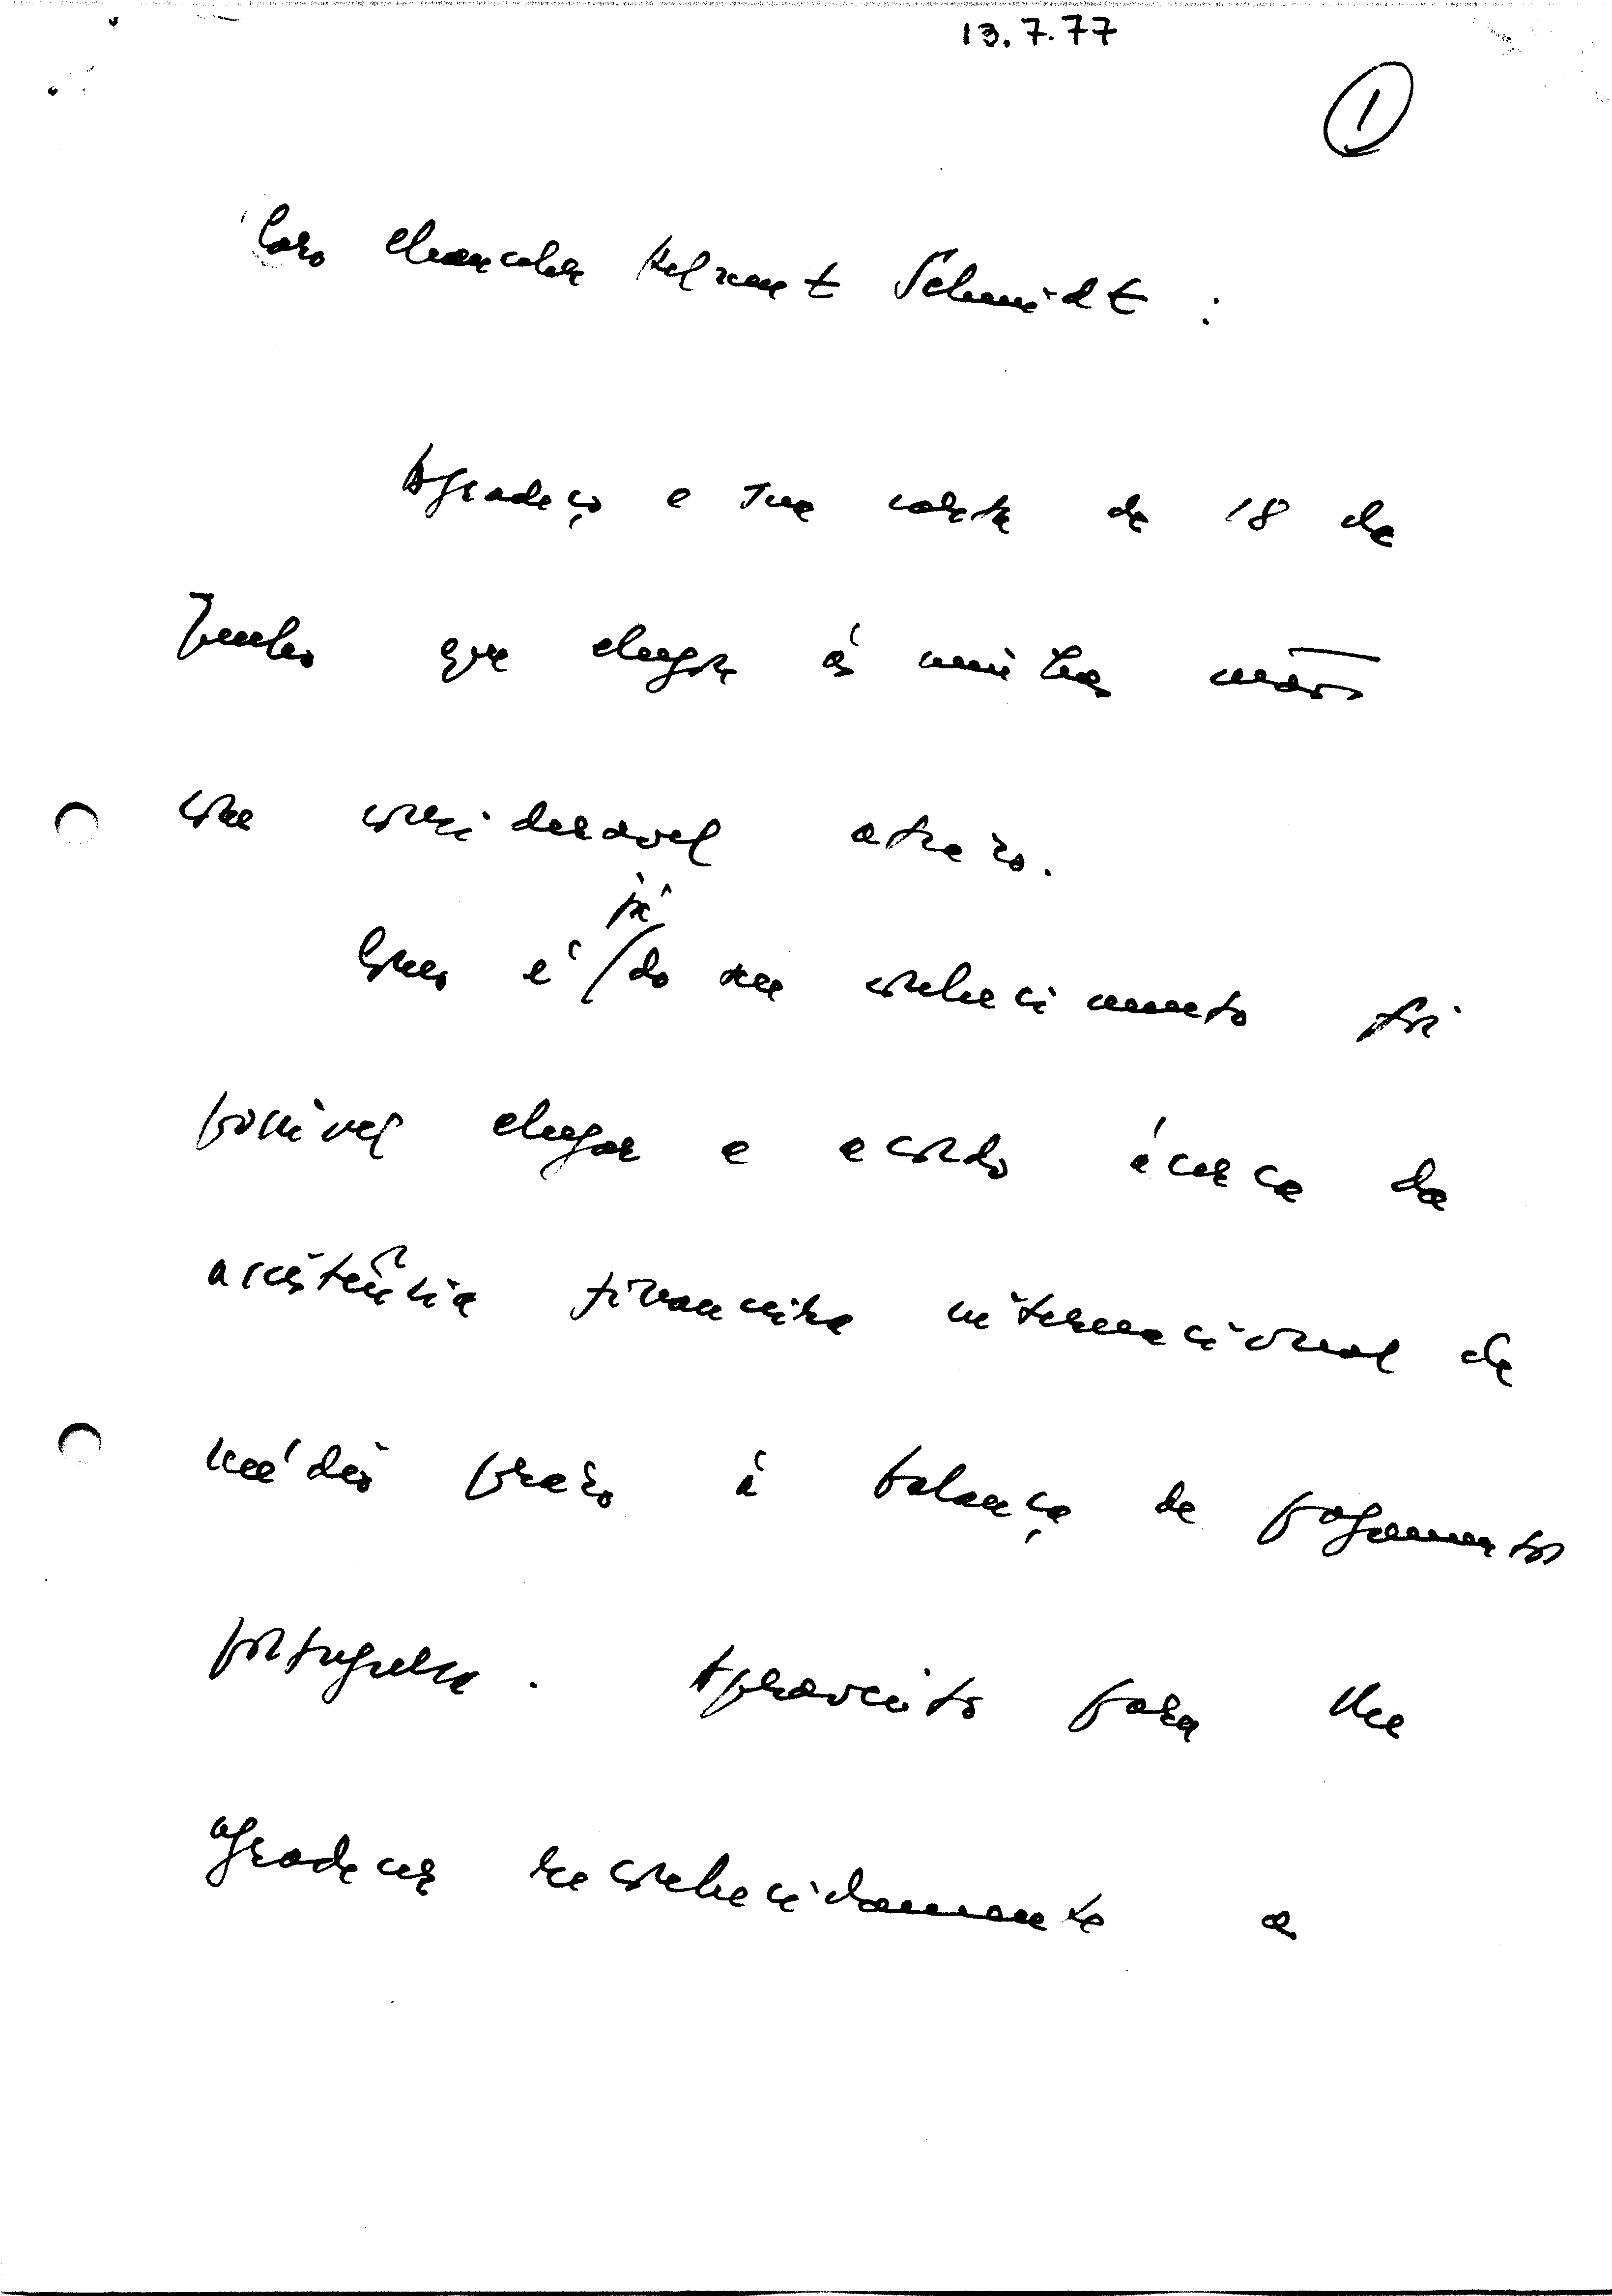 13.7.77
1
Caro Chanceler Helmut Schmidt :
Agradeço a sua carta de 18 de
Junho que chegou às minhas mãos
com considerável atraso.
já
Como é do seu conhecimento foi
possível chegar a acordo ácerca da
assistência financeira internacional de
médio prazo à balança de pagamentos
portuguesa. Aproveito para lhe
agradecer reconhecidamente a